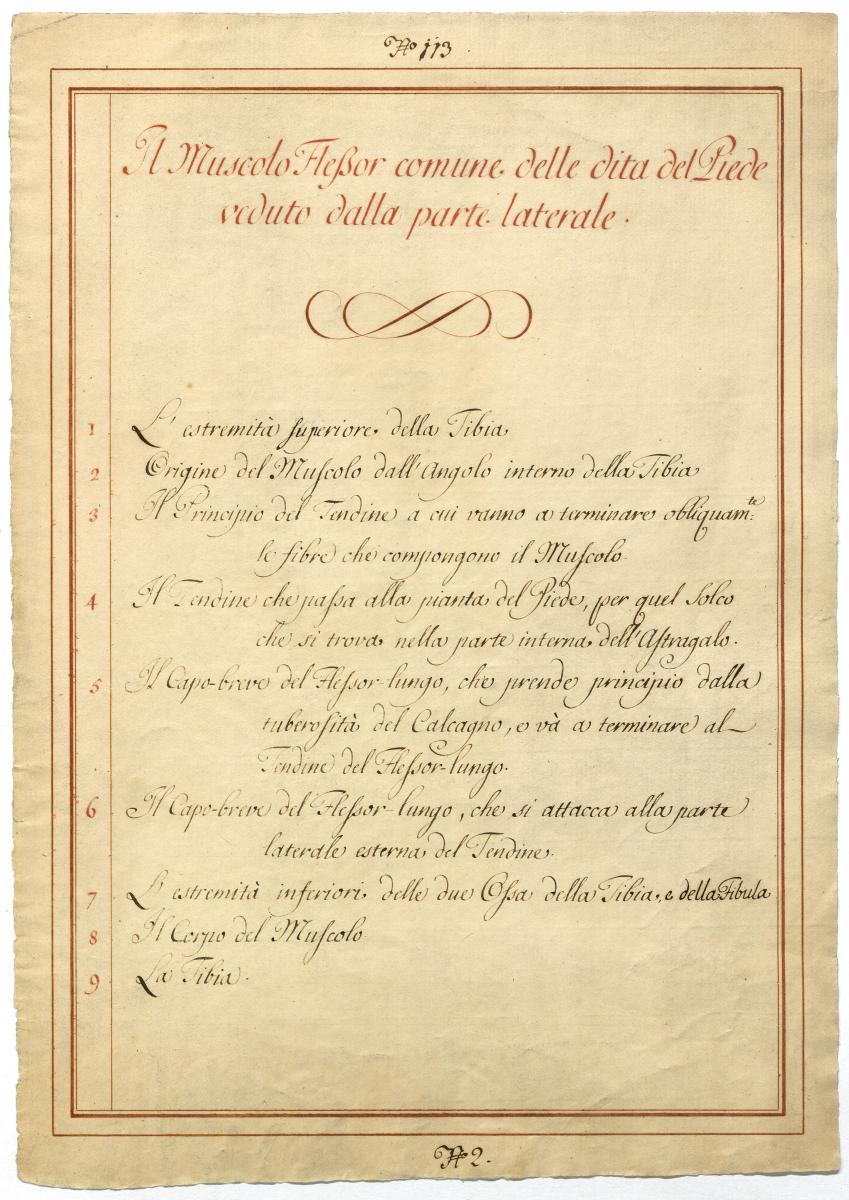 No 113.
Il Muscolo Fleßor comune delle dita del Piede
veduto dalla parte laterale.
1 L'estremità superiore della Tibia
2 Origine del Muscolo dall'Angolo interno della Tibia
3 Il Principio del Tendine a cui vanno a terminare obliquam:te
le fibre che compongono il Muscolo.
4 Il Tendine che passa alla pianta del Piede, per quel Solco
che si trova nella parte interna dell'Astragalo.
5 Il Capo-breve del Flessor-lungo, che prende principio dalla
tuberosità del Calcagno, e và a terminare al
Tendine del Flessor-lungo.
6 Il Capo-breve del Flessor-lungo, che si attacca alla parte
laterale esterna del Tendine.
7 L'estremità inferiori delle due Ossa della Tibia, e della Fibula
8 Il Corpo del Muscolo.
9 La Tibia.
No 2.